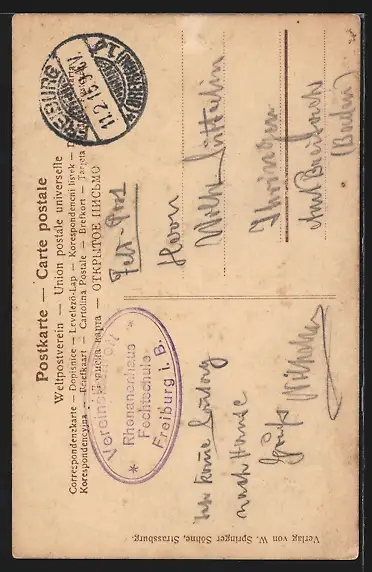 Postkarte — Carte postale
Weltpostverein — Union postale universelle
Correspondenzkarte — Dopisnice — Levelező-Lap — Korespondenční lístek —
Korespondencyjna — Brefkaart — Cartolina Postale — Brefkort — Tarjeta
— ОТКРЫТОЕ ПИСЬМО
FREIBURG
11.2.15.9-10V.
(BREISGAU) 1
Feld-Post
Herrn
Wilh.
Ihringen
Amt Breisach
(Baden)
Vereins
Rhenanenhaus
Fechtschule
Freiburg i. B.
Ich komme Sonntag
nach Hause
Gruß Wilhelm
Verlag von W. Springer Söhne, Strassburg.